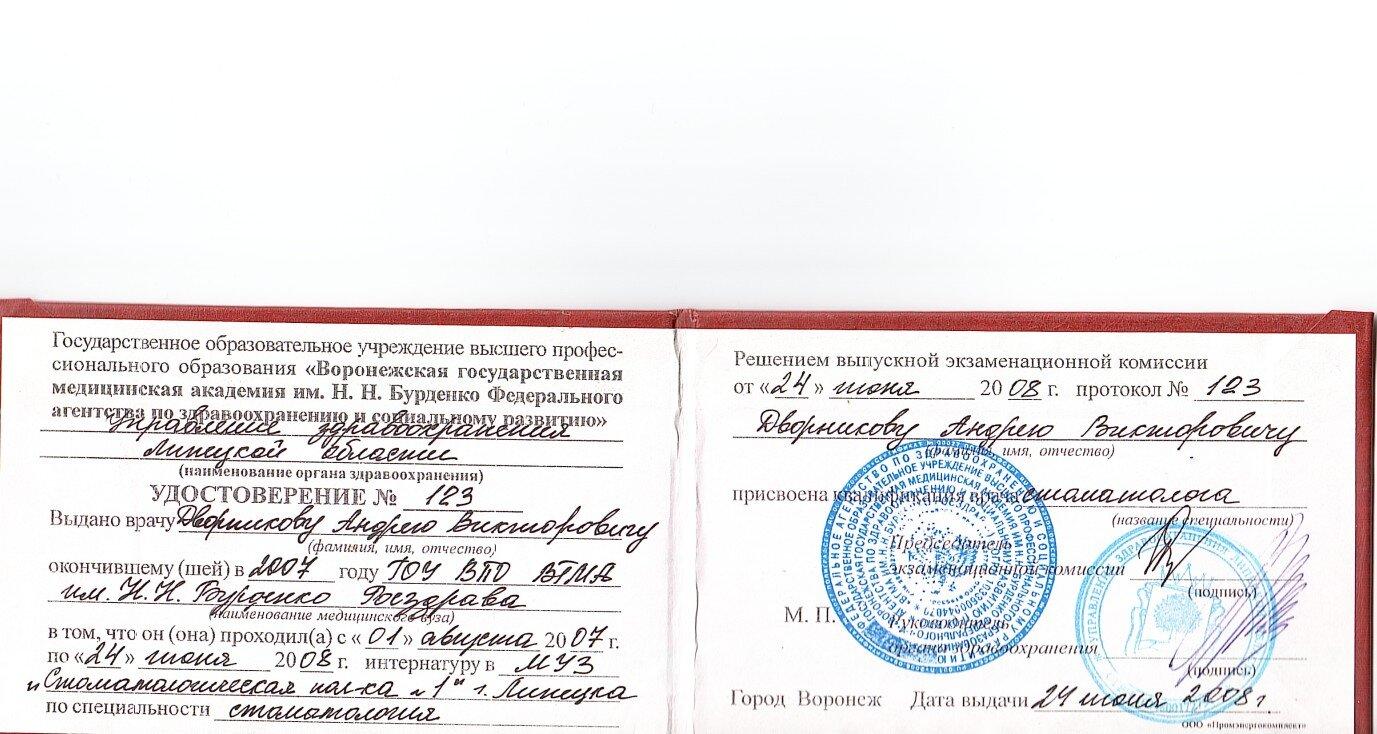 Государственное образовательное учреждение высшего профес-
сионального образования «Воронежская государственная
медицинская академия им. Н. Н. Бурденко Федерального
агентства по здравоохранению и социальному развитию»
Управления здравоохранения
Липецкой области
(наименование органа здравоохранения)
УДОСТОВЕРЕНИЕ № 123
Выдано врачу Дворникову Андрею Викторовичу
(фамилия, имя, отчество)
окончившему (шей) в 2007 году ГОУ ВПО ВГМА
им. Н. Н. Бурденко Росздрава
(наименование медицинского вуза)
в том, что он (она) проходил(а) с «01» августа 2007 г.
по «24» июня 2008 г. интернатуру в МУЗ
"Стоматологическая пол-ка №1" г. Липецка
по специальности стоматология
Решением выпускной экзаменационной комиссии
от «24» июня 2008 г. протокол № 123
Дворникову Андрею Викторовичу
(фамилия, имя, отчество)
присвоена квалификация врача стоматолога
(название специальности)
Председатель
экзаменационной комиссии
(подпись)
М. П.
Руководитель
органа здравоохранения
(подпись)
Город Воронеж Дата выдачи 24 июня 2008 г.
ООО «Промэнергокомплект»